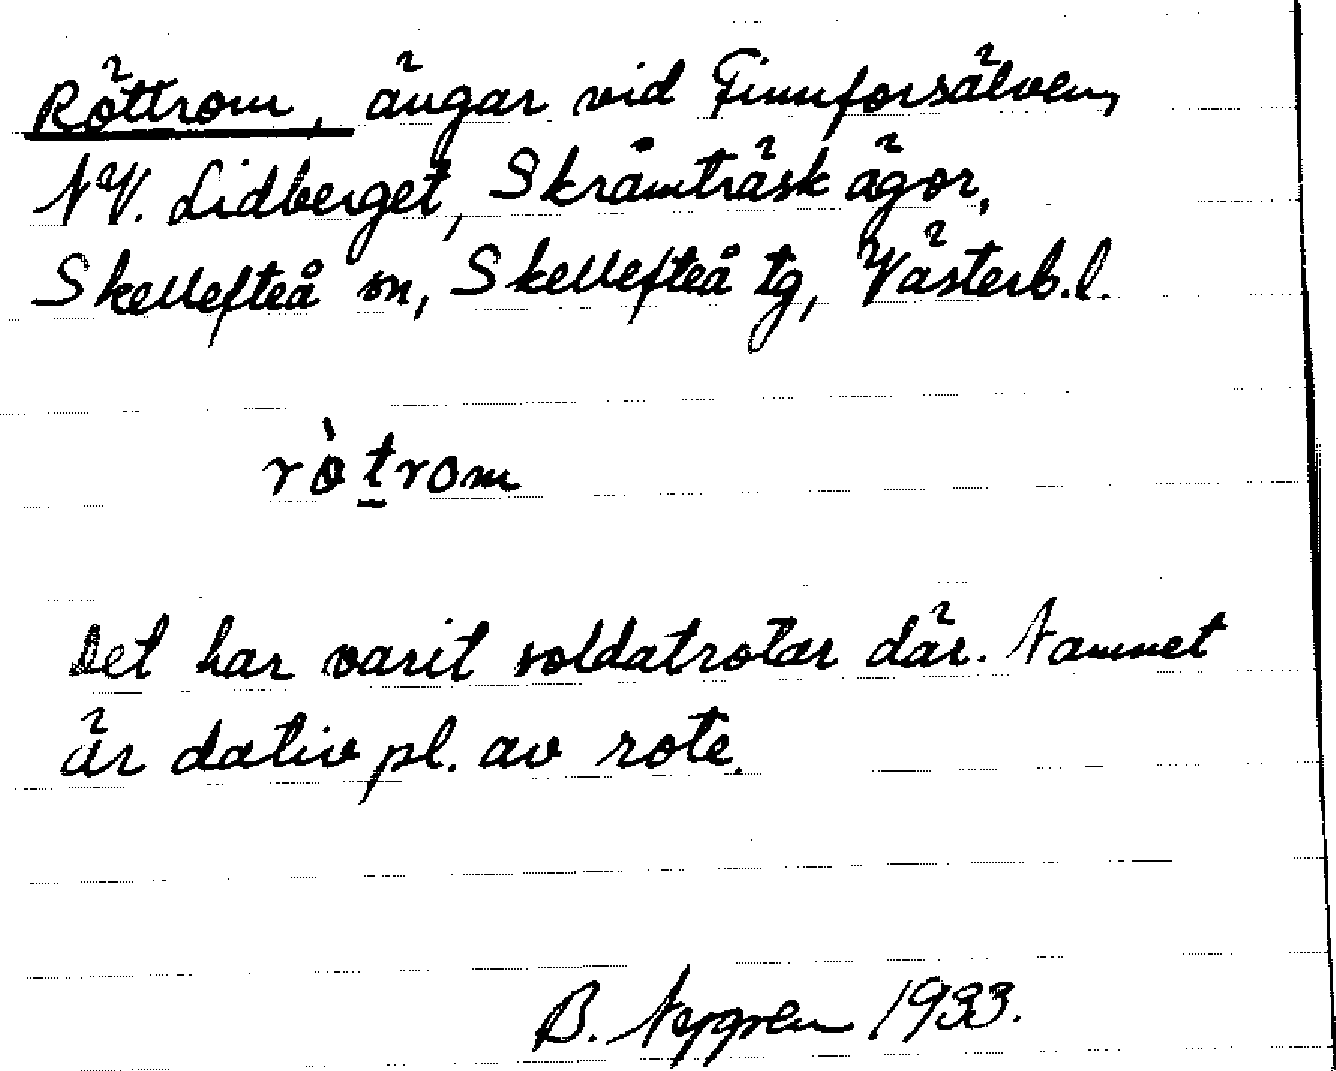 Röttrom, ängar vid Finnforsälven,
NV. Lidberget, Skråmträsk ägor,
Skellefteå sn, Skellefteå tg, Västerb.l.
ròt̲rom
Det har varit soldatrotar där. Namnet
är dativ pl. av rote.
B. Nygren 1933.